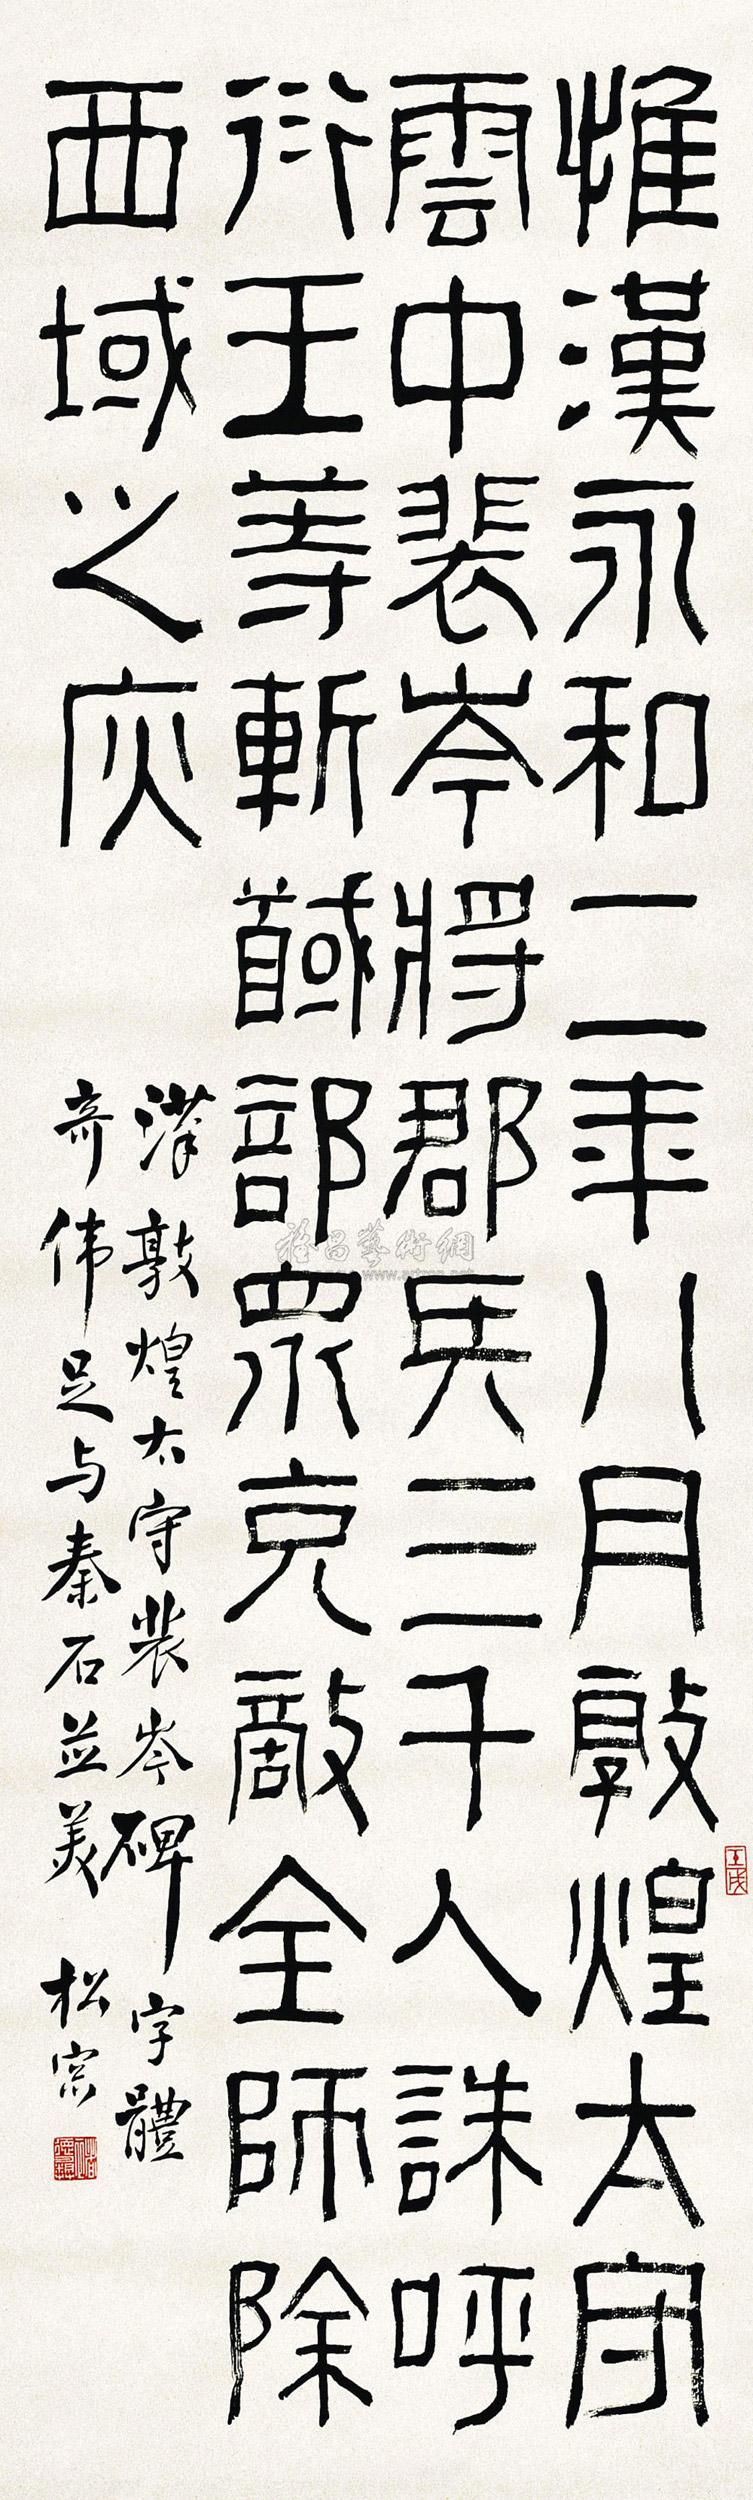 惟漢永和二年八月敦煌太守
雲中裴岑將郡兵三千人誅呼
衍王等斬馘部眾克敵全師除
西域之灾
漢敦煌太守裴岑碑字體
奇伟足与秦石並美 松窗
壬戌
雅昌藝術網
www.artron.net